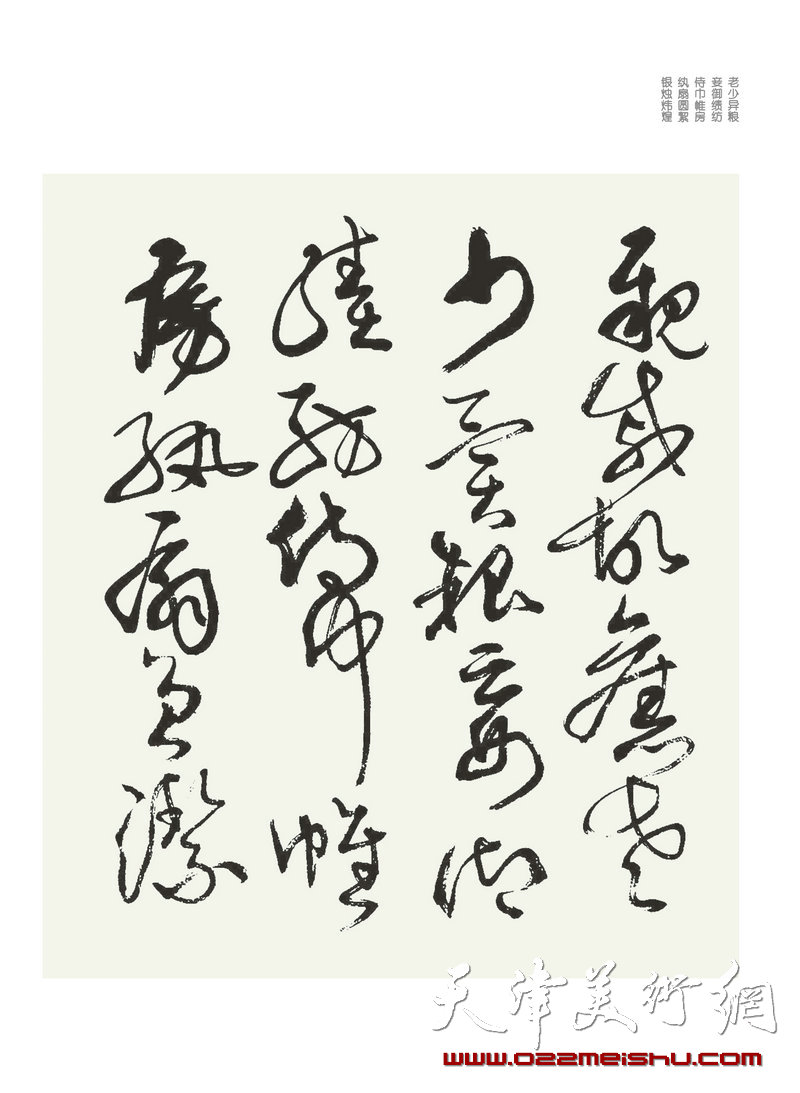 老少异粮
妾御绩纺
侍巾帷房
纨扇圆絜
银烛炜煌
親戚故舊老
少異糧妾御
績紡侍巾帷
房紈扇員潔
天津美術網
www.022meishu.com